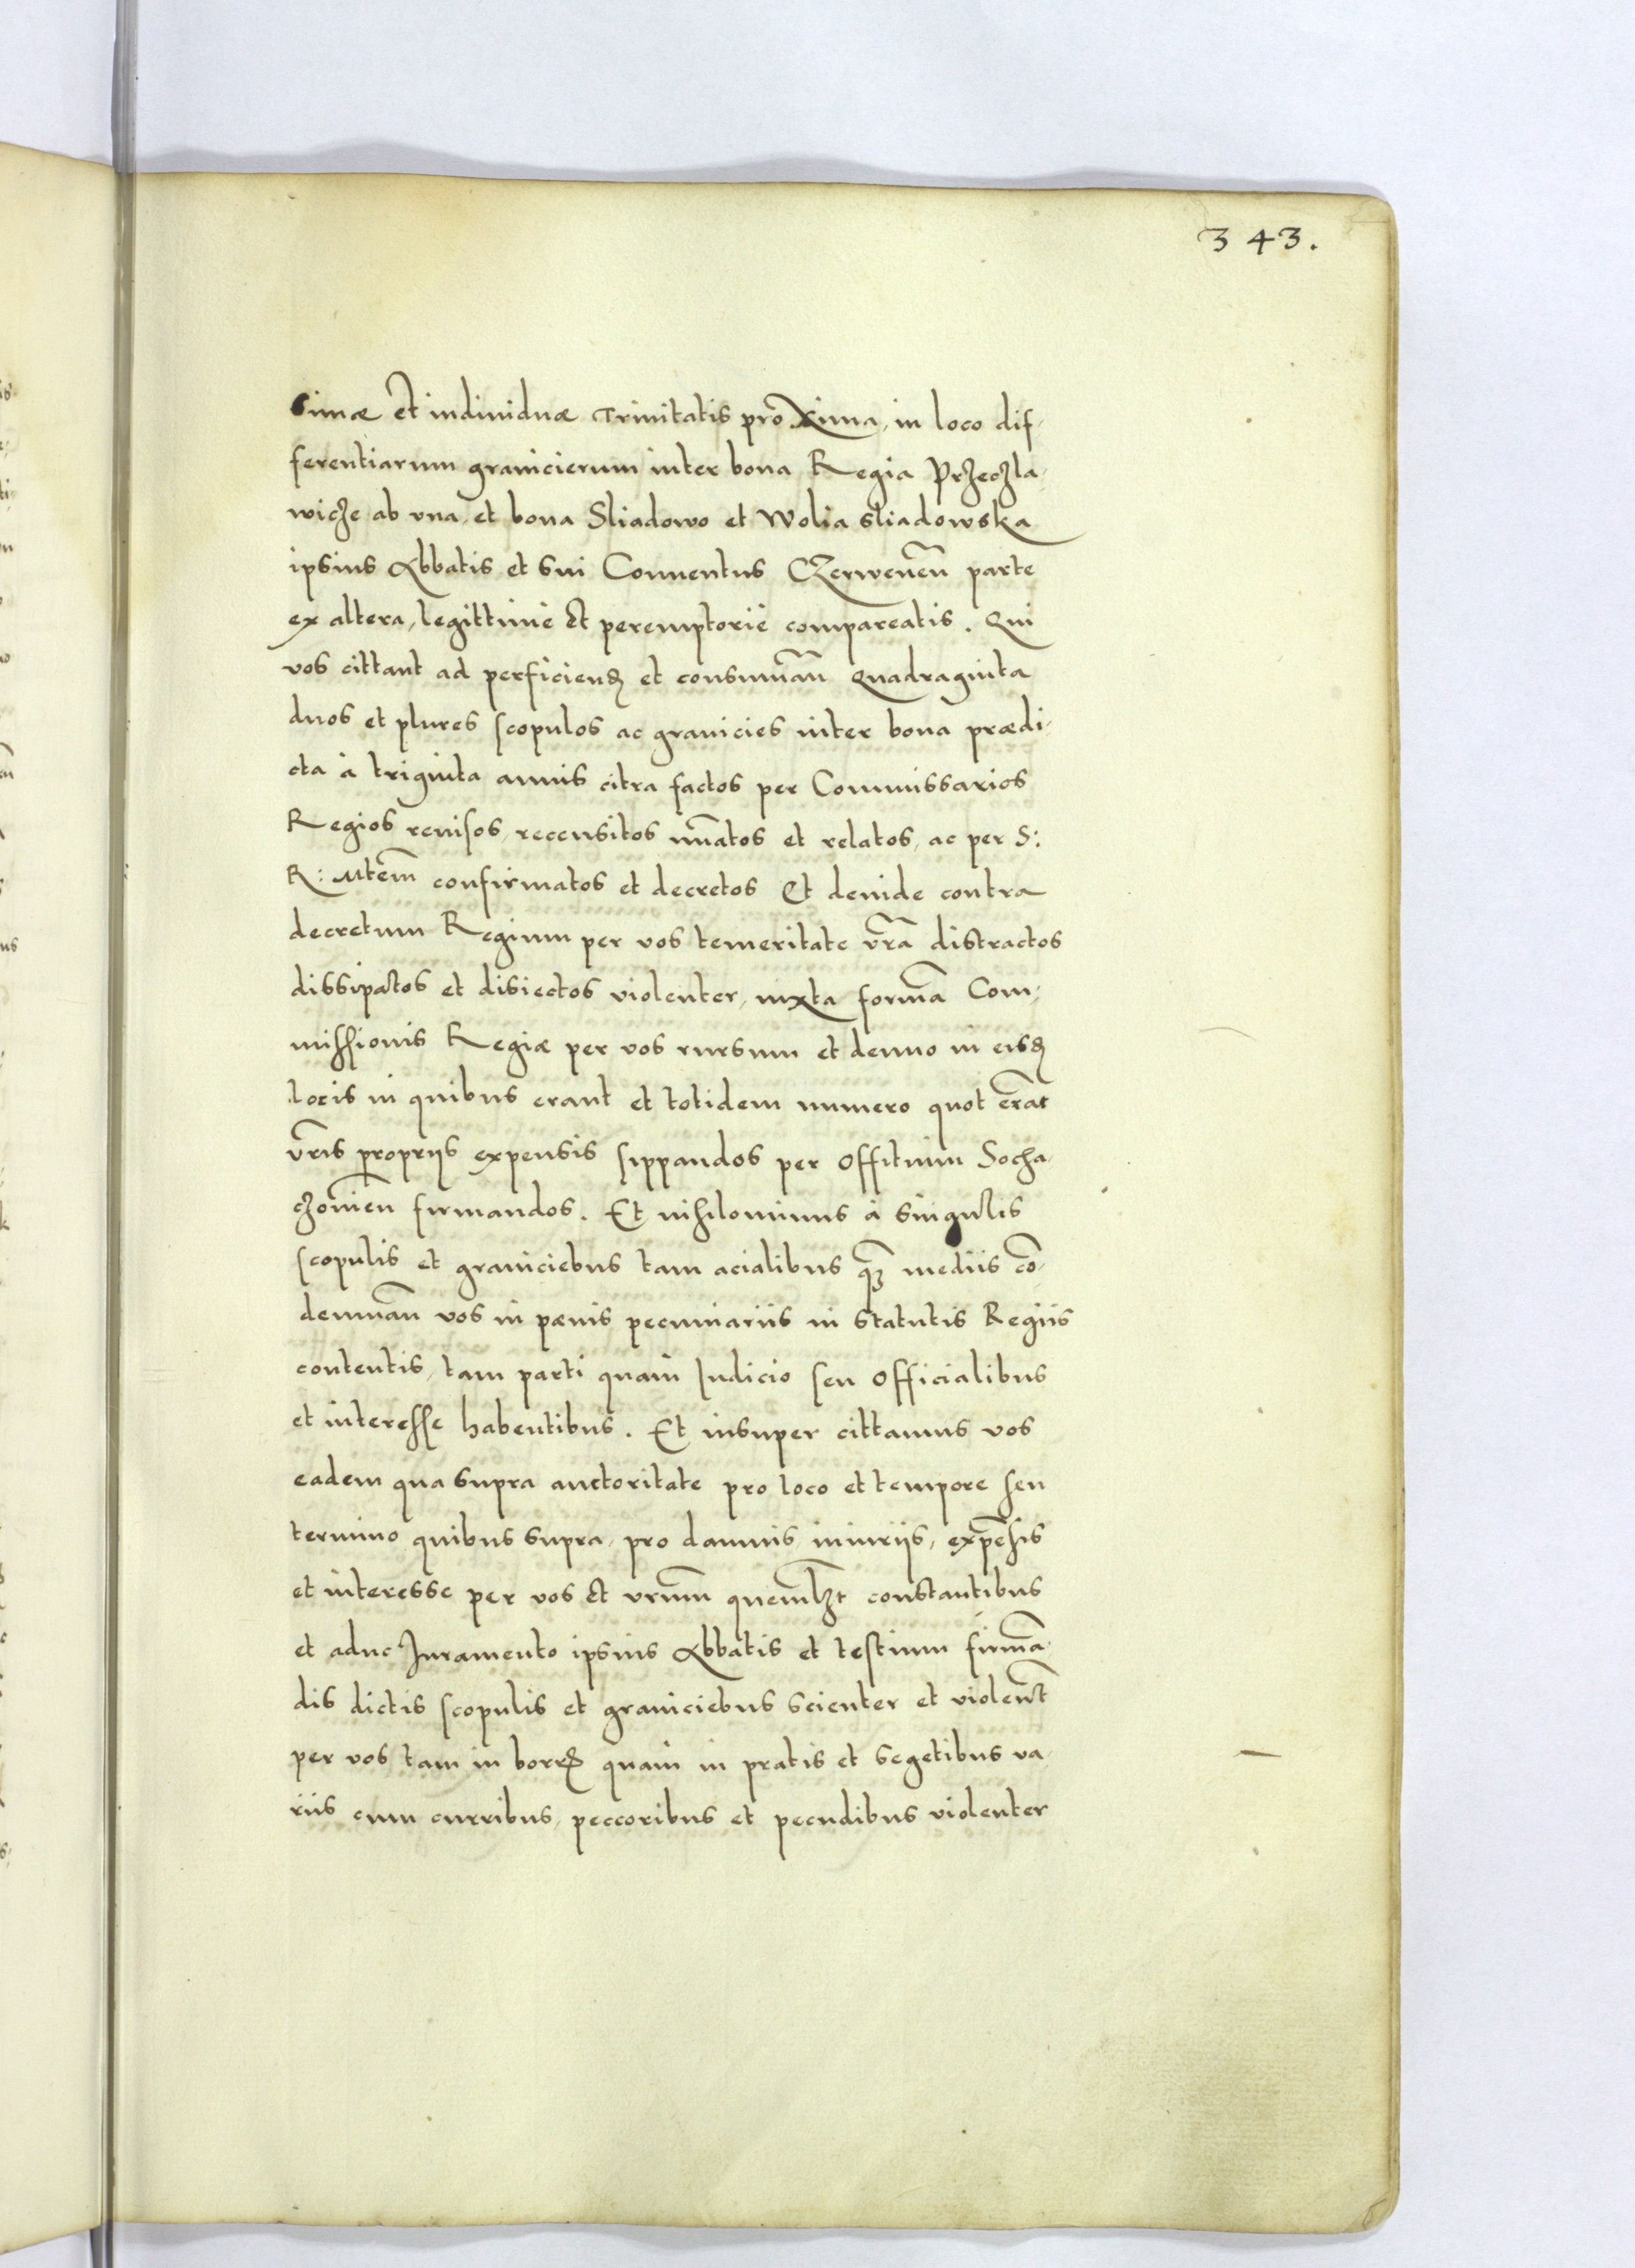 343.
simæ et indiuiduæ Trinitatis proxima, in loco dif-
ferentiarum granicierum inter bona Regia Przeczla-
wicze ab vna, et bona Sliadowo et Wolia Sliadowska
ipsius Abbatis et sui Conuentus Czerwenen̄ parte
ex altera, legittimè et peremptoriè compareatis. Qui
vos cittant ad perficiend̄ et consumān Quadraginta
duos et plures scopulos ac granicies inter bona prædi-
cta à triginta annis citra factos per Commissarios
Regios reuisos, recensitos nūatos et relatos, ac per S:
R: Mtem̄ confirmatos et decretos Et deinde contra
decretum Regium per vos temeritate vr̄a distractos
dissipatos et disiectos violenter, iuxta formā Com-
missionis Regiæ per vos rursum et denuo in eisd̄
locis in quibus erant et totidem numero quot erāt
vr̄is proprijs expensis sippandos per Offitium Socha-
czouien̄ firmandos. Et nihilominus à singulis
scopulis et graniciebus tam acialibus q̄ȝ mediis cō-
demnān vos in pænis pecuniariis in statutis Regiis
contentis, tam parti quàm Iudicio seu Officialibus
et interesse habentibus. Et insuper cittamus vos
eadem qua supra auctoritate pro loco et tempore seu
termino quibus supra, pro damnis, iniuriis, expēsis
et interesse per vos et vrūm quemlȝt constantibus
et aduc Iuramento ipsius Abbatis et testium firmā-
dis dictis scopulis et graniciebus scienter et violent̄
per vos tam in borr̄ quàm in pratis et segetibus va-
riis cum curribus, peccoribus et pecudibus violenter